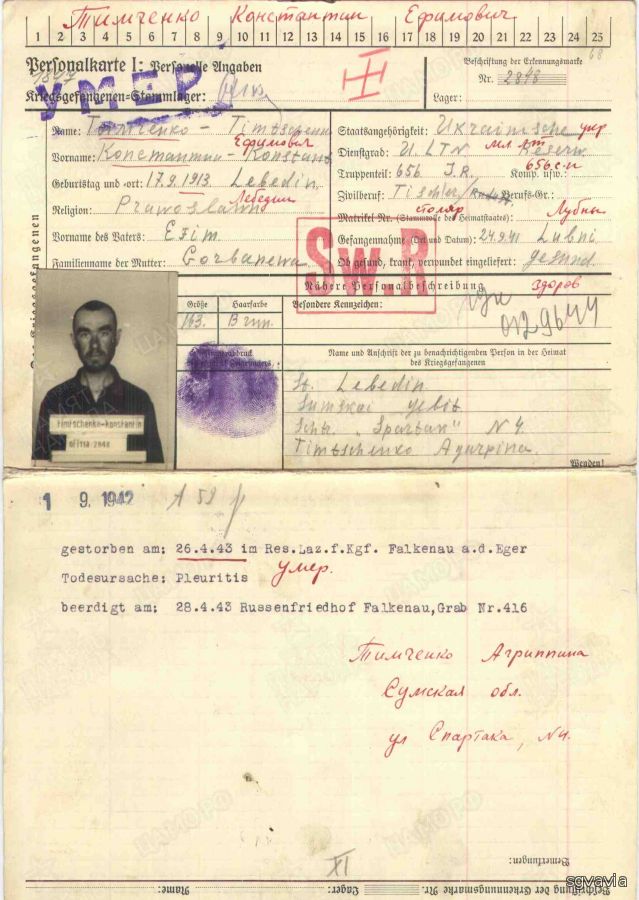 Тимченко Константин Ефимович
1 2 3 4 5 6 7 8 9 10 11 12 13 14 15 16 17 18 19 20 21 22 23 24 25
Personalkarte I: Personelle Angaben
Kriegsgefangenen-Stammlager:
УМЕР
Beschriftung der Erkennungsmarke
Nr. 2848
Lager:
Name: Timtschenko
Ефимович
Vorname: Константин - Konstant
Geburtstag und -ort: 17.9.1913 Lebedin
Лебедин
Religion: Prawoslawn
Vorname des Vaters: Efim
Familienname der Mutter: Gorbanewa
Staatsangehörigkeit: Ukrainische укр
Dienstgrad: U. LTN Reserw
Truppenteil: 656 J.R. Komp. usw.: 656 с.п
Zivilberuf: Tischler Berufs-Gr.:
столяр
Matrikel Nr. (Stammrolle des Heimatstaates): Лубны
Gefangennahme (Ort und Datum): 24.9.41 Lubni
Ob gesund, krank, verwundet eingeliefert: gesund
здоров
Sw.R
Nähere Personalbeschreibung
Größe Haarfarbe Besondere Kennzeichen:
163. Braun.
0129644
Fingerabdruck
Name und Anschrift der zu benachrichtigenden Person in der Heimat
des Kriegsgefangenen
St. Lebedin
Sumskai
"Spartak" N 4.
Timtschenko Agurpina.
Wenden!
timtschenko-konstantin
oflna-2848
1 9. 1942 A 59
gestorben am: 26.4.43 im Res.Laz.f.Kgf. Falkenau a.d.Eger
Todesursache: Pleuritis умер.
beerdigt am: 28.4.43 Russenfriedhof Falkenau,Grab Nr.416
Тимченко Агриппина
Сумская обл.
ул Спартака, N4.
XI
Bemerkungen:
Beschriftung der Erkennungsmarke Nr. Lager: Name:
sgvavia